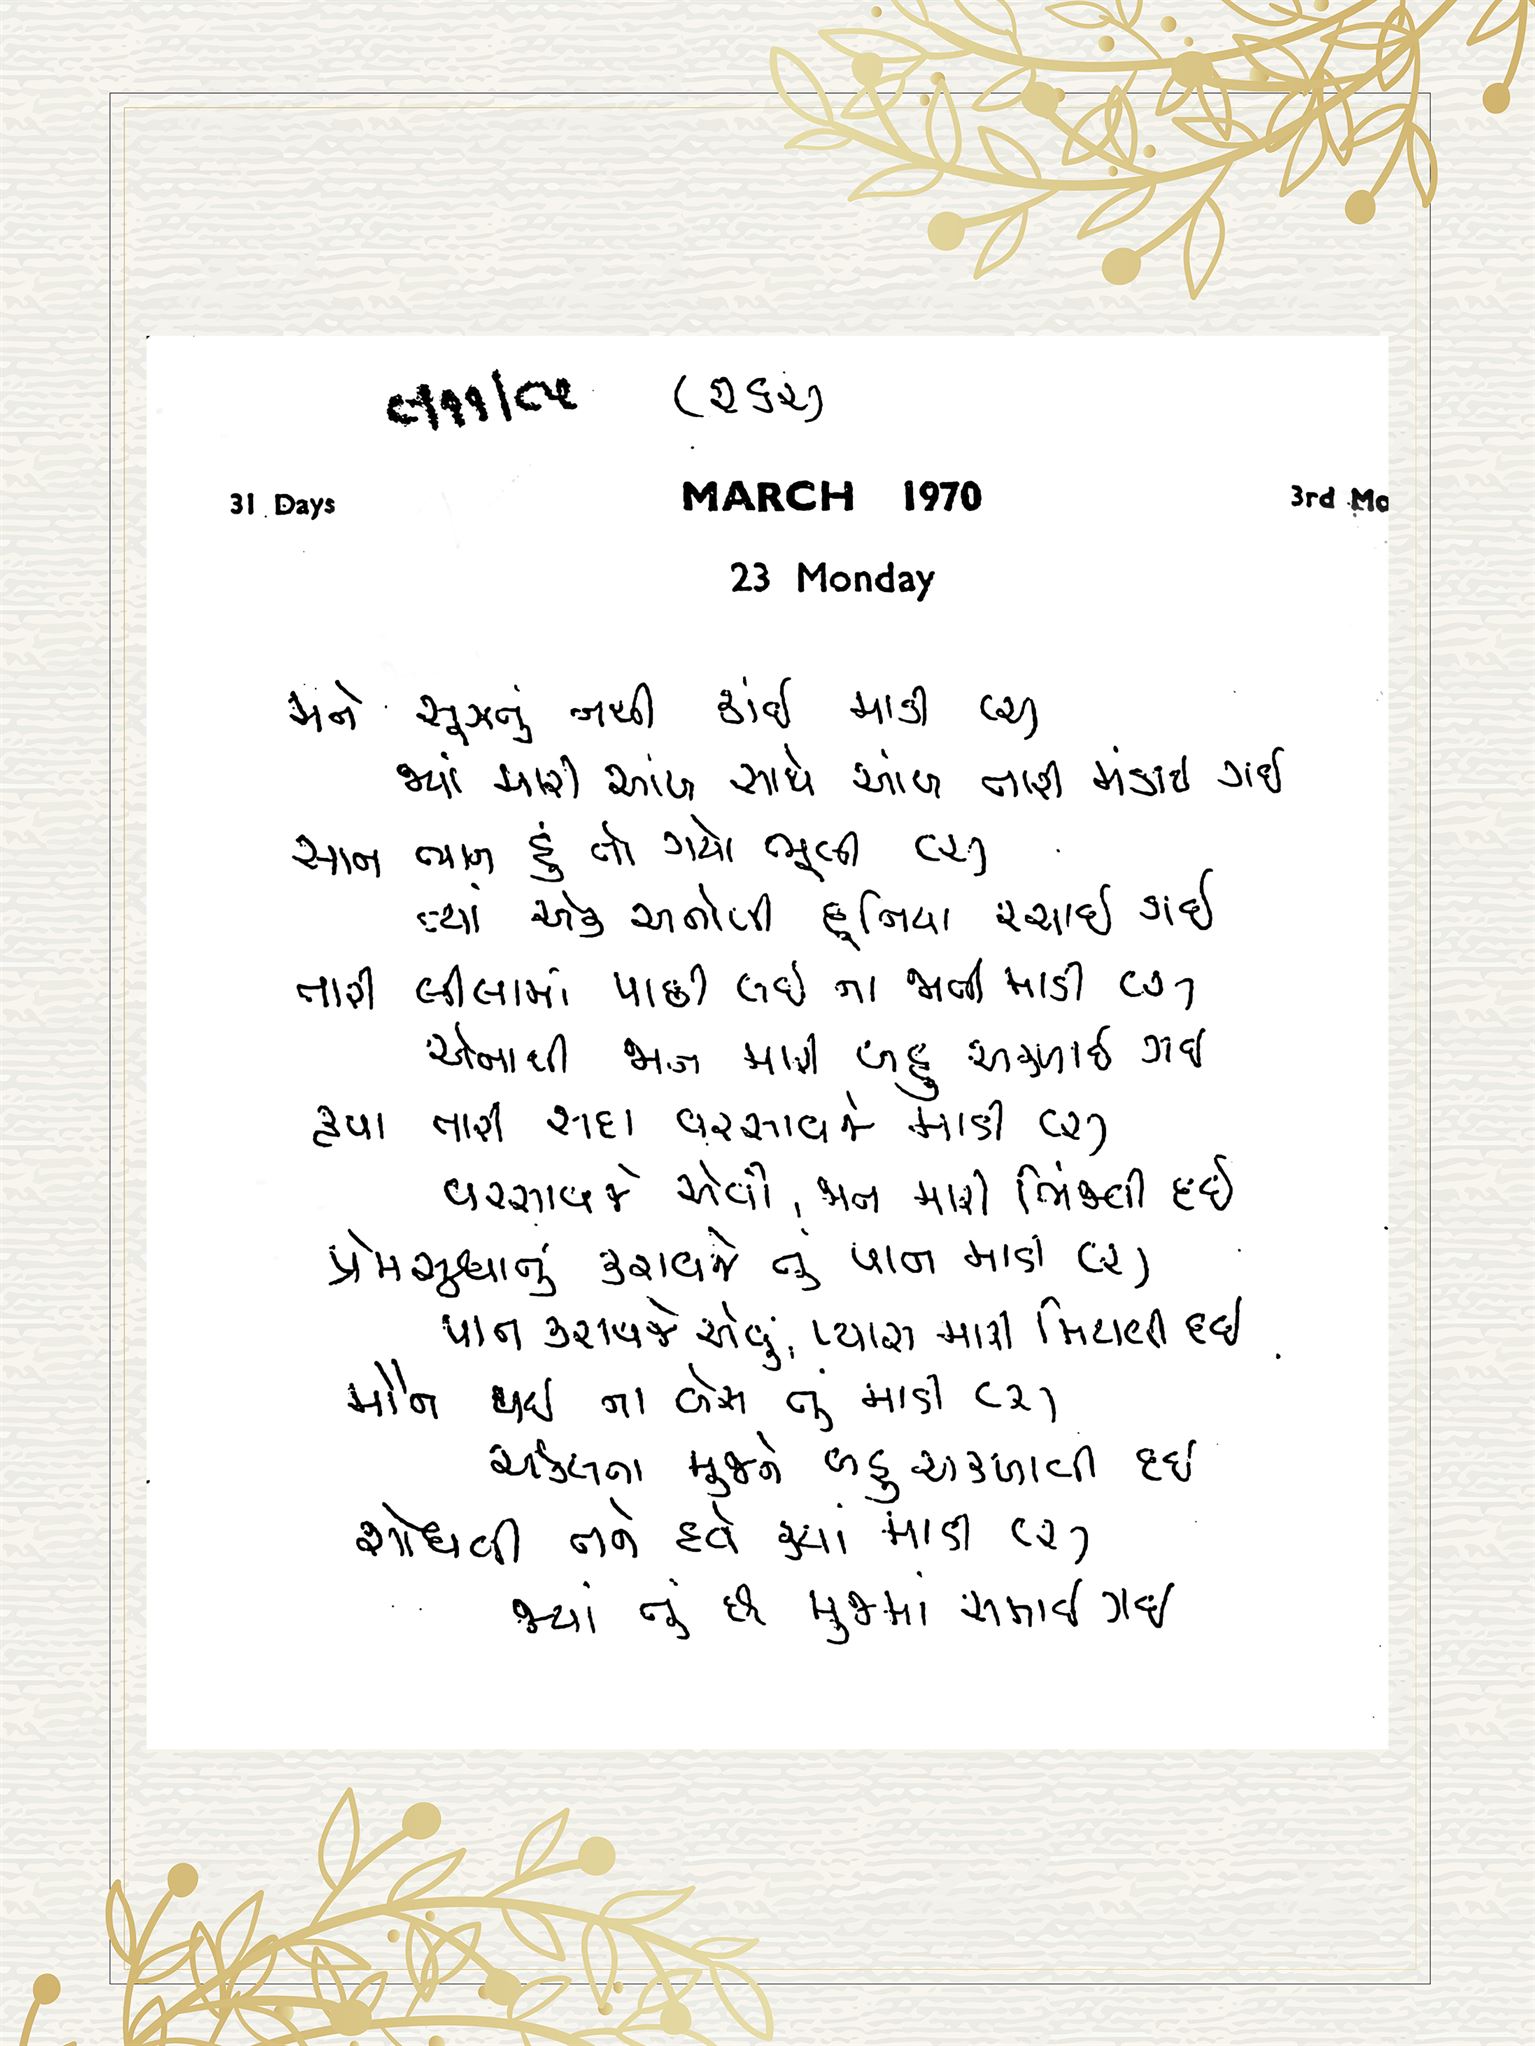 ૯/૧૧/૮૫ (શુક્ર)
31 Days MARCH 1970 3rd Mo
23 Monday
મને સૂઝતું નથી કાંઈ માડી (૨)
જ્યાં મારી આંખ સાથે આંખ તારી મંડાઈ ગઈ
સાન ભાન હું તો ગયો ભૂલી (૨)
ત્યાં એક અનોખી દુનિયા રચાઈ ગઈ
તારી લીલામાં પાછી લઈ ના જતી માડી (૨)
એનાથી જાન મારી બહુ અકળાઈ ગઈ
કૃપા તારી સદા વરસાવજે માડી (૨)
વરસાવજે એવી, જાન મારી ભિંજાવી દઈ
પ્રેમસુધાનું કરાવજે તું પાન માડી (૨)
પાન કરાવજે એવું, પ્યાસ મારી મિટાવી દઈ
મૌન થઈ ના બેસ તું માડી (૨)
અકેલતા મુજને બહુ અકળાવી દઈ
શોધવી તને હવે ક્યાં માડી (૨)
જ્યાં તું છે મુજમાં સમાઈ ગઈ